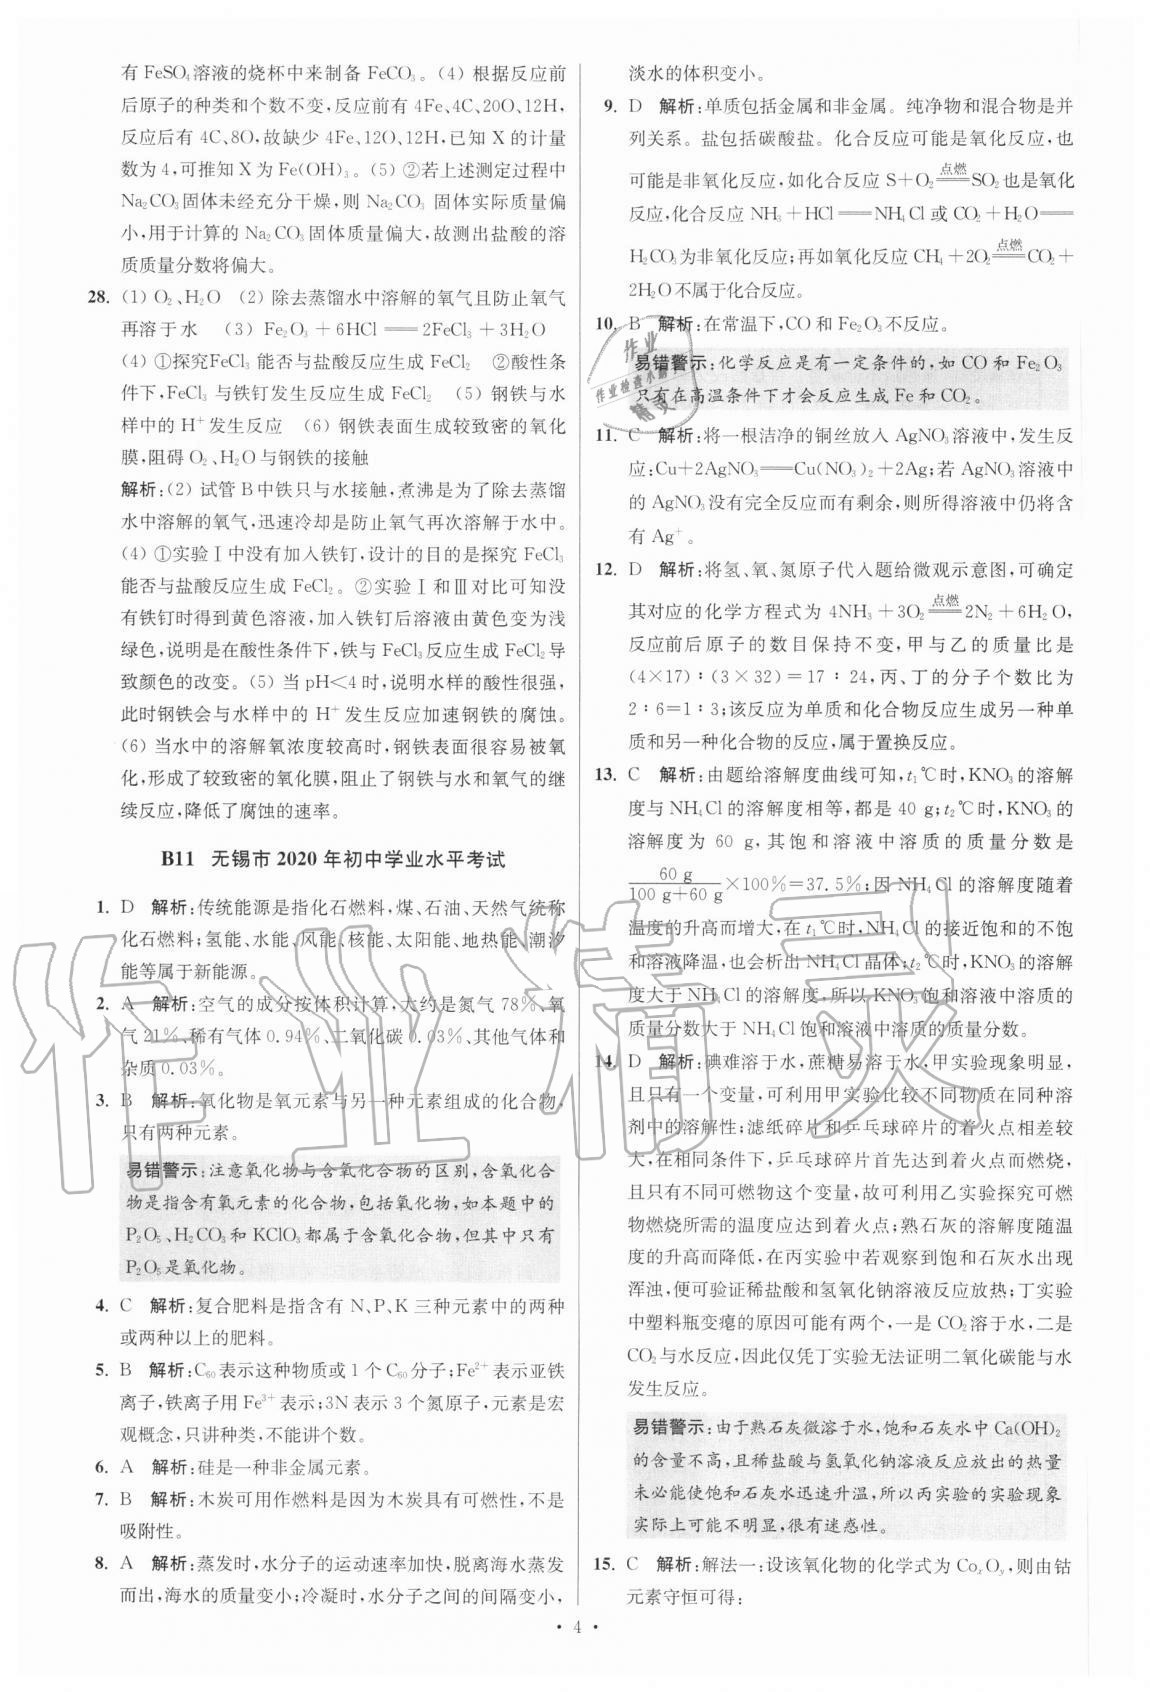 有 FeSO₄ 溶液的烧杯中来制备 FeCO₃。(4) 根据反应前
后原子的种类和个数不变,反应前有 4Fe、4C、20O、12H,
反应后有 4C、8O,故缺少 4Fe、12O、12H,已知 X 的计量
数为 4,可推知 X 为 Fe(OH)₃。(5) ②若上述测定过程中
Na₂CO₃ 固体未经充分干燥,则 Na₂CO₃ 固体实际质量偏
小,用于计算的 Na₂CO₃ 固体质量偏大,故测出盐酸的溶
质质量分数将偏大。
28. (1) O₂、H₂O (2) 除去蒸馏水中溶解的氧气且防止氧气
再溶于水 (3) Fe₂O₃+6HCl══2FeCl₃+3H₂O
(4) ①探究FeCl₃ 能否与盐酸反应生成 FeCl₂ ②酸性条
件下,FeCl₃ 与铁钉发生反应生成 FeCl₂ (5) 钢铁与水
样中的 H⁺ 发生反应 (6) 钢铁表面生成较致密的氧化
膜,阻碍 O₂、H₂O 与钢铁的接触
解析:(2) 试管 B 中铁只与水接触,煮沸是为了除去蒸馏
水中溶解的氧气,迅速冷却是防止氧气再次溶解于水中。
(4) ①实验Ⅰ中没有加入铁钉,设计的目的是探究 FeCl₃
能否与盐酸反应生成 FeCl₂。②实验Ⅰ和Ⅲ对比可知发
没有铁钉时得到黄色溶液,加入铁钉后溶液由黄色变为浅
绿色,说明是在酸性条件下,铁与 FeCl₃ 反应生成 FeCl₂ 导
致颜色的改变。(5) 当 pH<4 时,说明水样的酸性很强,
此时钢铁会与水样中的 H⁺ 发生反应加速钢铁的腐蚀。
(6) 当水中的溶解氧浓度较高时,钢铁表面很容易被氧
化,形成了较致密的氧化膜,阻止了钢铁与水和氧气的继
续反应,降低了腐蚀的速率。
B11 无锡市 2020 年初中学业水平考试
1. D 解析:传统能源是指化石燃料,煤、石油、天然气统称
化石燃料;氢能、水能、风能、核能、太阳能、地热能、潮汐
能等属于新能源。
2. A 解析:空气的成分按体积计算,大约是氮气 78%、氧
气 21%、稀有气体 0.94%、二氧化碳 0.03%、其他气体和
杂质 0.03%。
3. B 解析:氧化物是氧元素与另一种元素组成的化合物,
只有两种元素。
易错警示:注意氧化物与含氧化合物的区别,含氧化合
物是指含有氧元素的化合物,包括氧化物,如本题中的
P₂O₅、H₂CO₃ 和 KClO₃ 都属于含氧化合物,但其中只有
P₂O₅ 是氧化物。
4. C 解析:复合肥料是指含有 N、P、K 三种元素中的两种
或两种以上的肥料。
5. B 解析:C₆₀ 表示这种物质或 1 个 C₆₀ 分子;Fe²⁺ 表示亚铁
离子,铁离子用 Fe³⁺ 表示;3N 表示 3 个氮原子,元素是宏
观概念,只讲种类,不能讲个数。
6. A 解析:硅是一种非金属元素。
7. B 解析:木炭可用作燃料是因为木炭具有可燃性,不是
吸附性。
8. A 解析:蒸发时,水分子的运动速率加快,脱离海水蒸发
而出,海水的质量变小;冷凝时,水分子间的间隔变小,
淡水的体积变小。
9. D 解析:单质包括金属和非金属。纯净物和混合物是并
列关系。盐包括碳酸盐。化合反应可能是氧化反应,也
可能是非氧化反应,如化合反应 S+O₂ 点燃══ SO₂ 也是氧化
反应,化合反应 NH₃+HCl══NH₄Cl 或 CO₂+H₂O══
H₂CO₃ 为非氧化反应;再如氧化反应 CH₄+2O₂ 点燃══ CO₂+
2H₂O 不属于化合反应。
10. B 解析:在常温下,CO 和 Fe₂O₃ 不反应。
易错警示:化学反应是有一定条件的,如 CO 和 Fe₂O₃
只有在高温条件下才会反应生成 Fe 和 CO₂。
11. C 解析:将一根洁净的铜丝放入 AgNO₃ 溶液中,发生反
应:Cu+2AgNO₃══Cu(NO₃)₂+2Ag;若 AgNO₃ 溶液中
的 AgNO₃ 没有完全反应而有剩余,则所得溶液中仍将含
有 Ag⁺。
12. D 解析:将氢、氧、氮原子代入题给微观示意图,可确定
其对应的化学方程式为 4NH₃+3O₂ 点燃══ 2N₂+6H₂O,
反应前后原子的数目保持不变,甲与乙的质量比是
(4×17)∶(3×32)=17∶24,丙、丁的分子个数比为
2∶6=1∶3;该反应为单质和化合物反应生成另一种单
质和另一种化合物的反应,属于置换反应。
13. C 解析:由题给溶解度曲线可知,t₁℃时,KNO₃ 的溶解
度与 NH₄Cl 的溶解度相等,都是 40 g;t₂℃时,KNO₃ 的
溶解度为 60 g,其饱和溶液中溶质的质量分数是
60 g/(100 g+60 g)×100%=37.5%;因 NH₄Cl 的溶解度随着
温度的升高而增大,在 t₁℃时,NH₄Cl 的接近饱和的不饱
和溶液降温,也会析出 NH₄Cl 晶体;t₂℃时,KNO₃ 的溶解
度大于 NH₄Cl 的溶解度,所以 KNO₃ 饱和溶液中溶质的
质量分数大于 NH₄Cl 饱和溶液中溶质的质量分数。
14. D 解析:碘难溶于水,蔗糖易溶于水,甲实验现象明显,
且只有一个变量,可利用甲实验比较不同物质在同种溶
剂中的溶解性;滤纸碎片和乒乓球碎片的着火点相差较
大,在相同条件下,乒乓球碎片首先达到着火点而燃烧,
且只有不同可燃物这个变量,故可利用乙实验探究可燃
物燃烧所需的温度应达到着火点;熟石灰的溶解度随温
度的升高而降低,在丙实验中若观察到饱和石灰水出现
浑浊,便可验证稀盐酸和氢氧化钠溶液反应放热;丁实验
中塑料瓶变瘪的原因可能有两个,一是 CO₂ 溶于水,二是
CO₂ 与水反应,因此仅凭丁实验无法证明二氧化碳能与水
发生反应。
易错警示:由于熟石灰微溶于水,饱和石灰水中 Ca(OH)₂
的含量不高,且稀盐酸与氢氧化钠溶液反应放出的热量
未必能使饱和石灰水迅速升温,所以丙实验的实验现象
实际上可能不明显,很有迷惑性。
15. C 解析:解法一:设该氧化物的化学式为 CoₓOᵧ,则由钴
元素守恒可得:
· 4 ·
作业精灵
作业
作业检查小助手
精灵